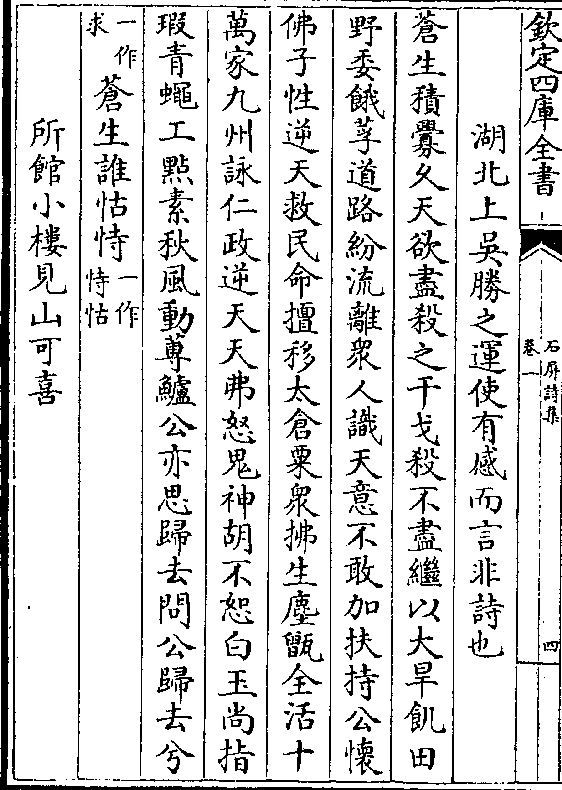 欽定四庫全書
石屏詩集
卷一
四
湖北上吳勝之運使有感而言非詩也
蒼生積釁久天欲盡殺之干戈殺不盡繼以大旱飢田
野委餓莩道路紛流離衆人識天意不敢加扶持公懷
佛子性逆天救民命擅移太倉粟衆拂生塵甑全活十
萬家九州詠仁政逆天天弗怒鬼神胡不恕白玉尚指
瑕青蠅工點素秋風動蓴鱸公亦思歸去問公歸去兮
一作求蒼生誰怙恃一作恃怙
所館小樓見山可喜